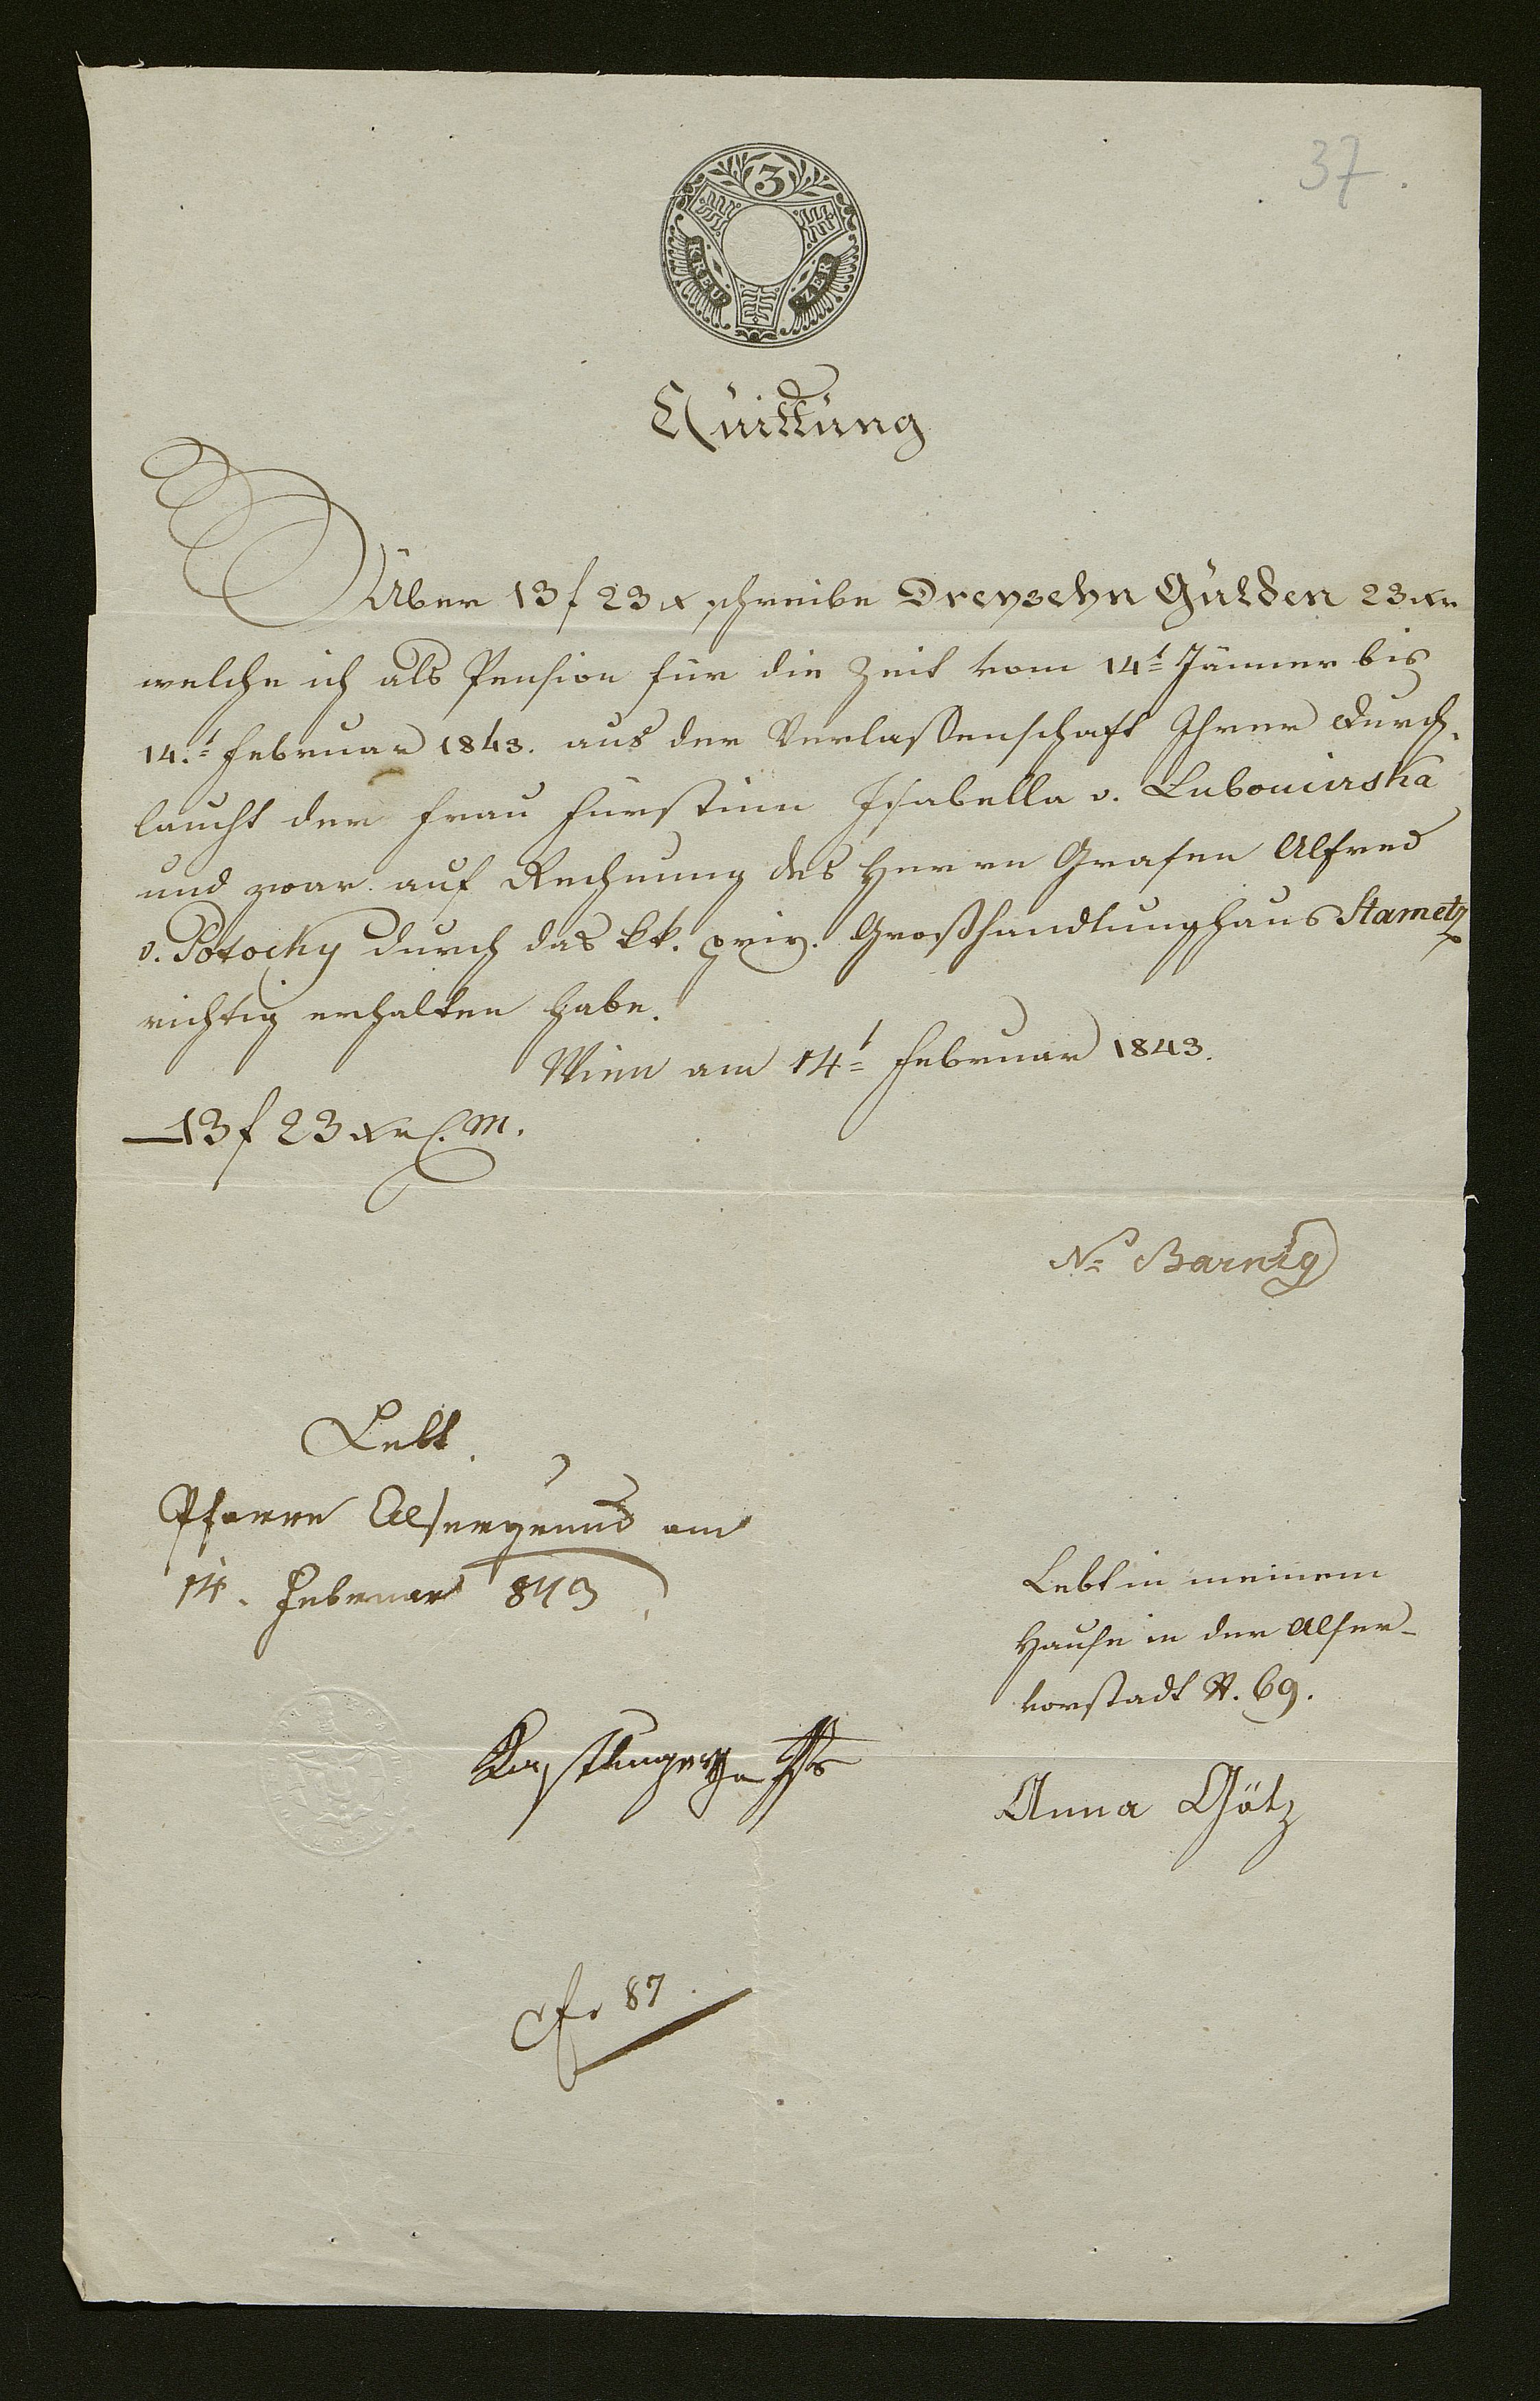 37.
3
KREU ZER
Quittung
Über 13 f 23 x schreibe Dreyzehn Gulden 23 xr
welche ich als Pension für die Zeit vom 14t Jänner bis
14.t Februar 1843. aus der Verlassenschaft Ihrer Durch-
laucht der Frau Fürstinn Isabella v. Lubomirska
und zwar auf Rechnung des Herrn Grafen Alfred
v. Potocky durch das kk. priv. Großhandlungshaus Stametz
richtig erhalten habe.
Wien am 14t Februar 1843.
13 f 23 xr C. M.
N: Barnig
Lebt.
Pfarre Alsergrund am
14. Februar 843
Lebt in meinem
Hause in der Alser-
vorstadt N. 69.
Anna Götz
87.